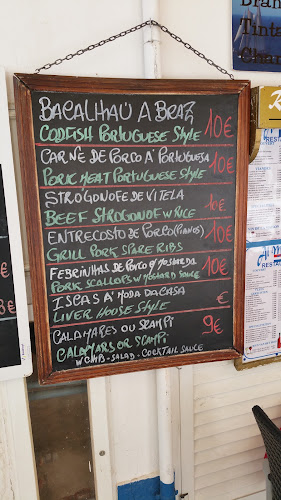 BACALHAU A BRAZ
CODFISH PORTUGUESE STYLE 10€
CARNE DE PORCO Á PORTUGUESA
PORK MEAT PORTUGUESE STYLE 10€
STROGONOFE DE VITELA
BEEF STROGONOF W RICE 10€
ENTRECOSTO DE PORCO (PIANOS)
GRILL PORK SPARE RIBS 10€
FEBRINHAS DE PORCO C/ MOSTARDA
PORK SCALLOPS W MOSTARD SAUCE 10€
ISCAS Á MODA DA CASA
LIVER HOUSE STYLE €
CALAMARES OU SCAMPI
CALAMARS OR SCAMPI 9€
W CHIPS - SALAD - COCKTAIL SAUCE
Tinta